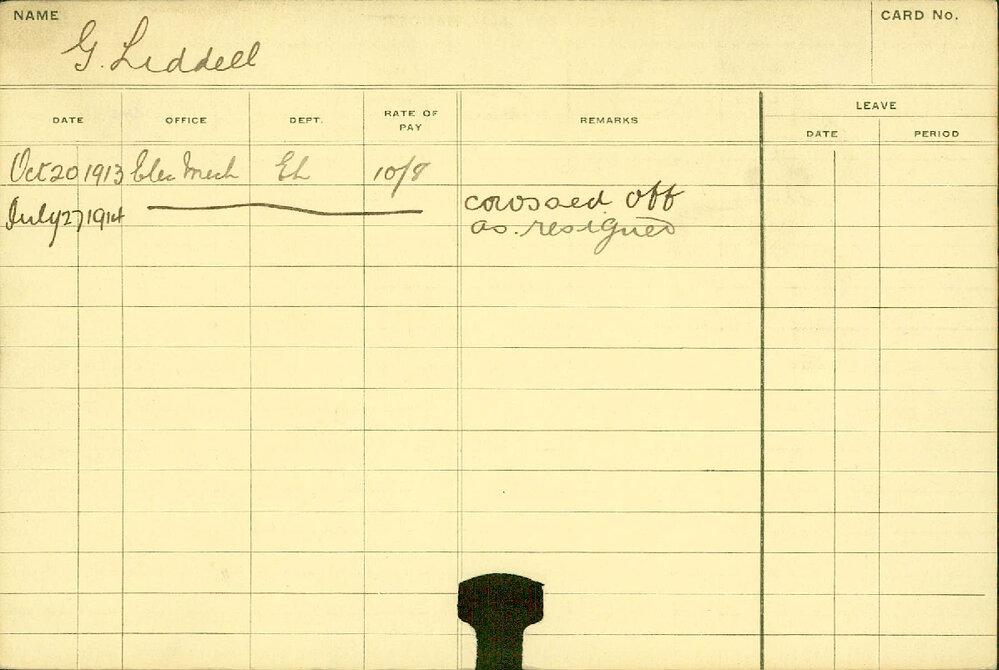 NAME
CARD No.
G. Liddell
LEAVE
DATE OFFICE DEPT. RATE OF PAY REMARKS DATE PERIOD
Oct 20 1913 Elec Mech EL 10/8
July 27 1914 crossed off
as resigned